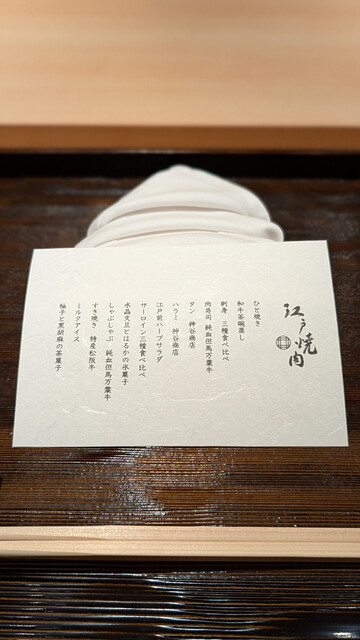 江戸焼肉
ひと焼き
和牛茶碗蒸し
刺身 三種食べ比べ
肉寿司 純血但馬万葉牛
タン 神谷商店
江戸前ハーブサラダ
ハラミ 神谷商店
サーロイン三種食べ比べ
水晶文旦とはるかの氷菓子
しゃぶしゃぶ 純血但馬万葉牛
すき焼き 特産松阪牛
ミルクアイス
柚子と黒胡麻の茶菓子